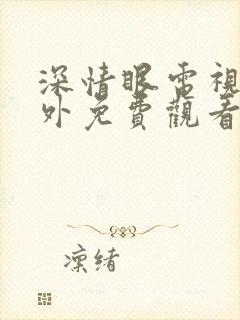 深情眼電視
外免費觀看
凜緒